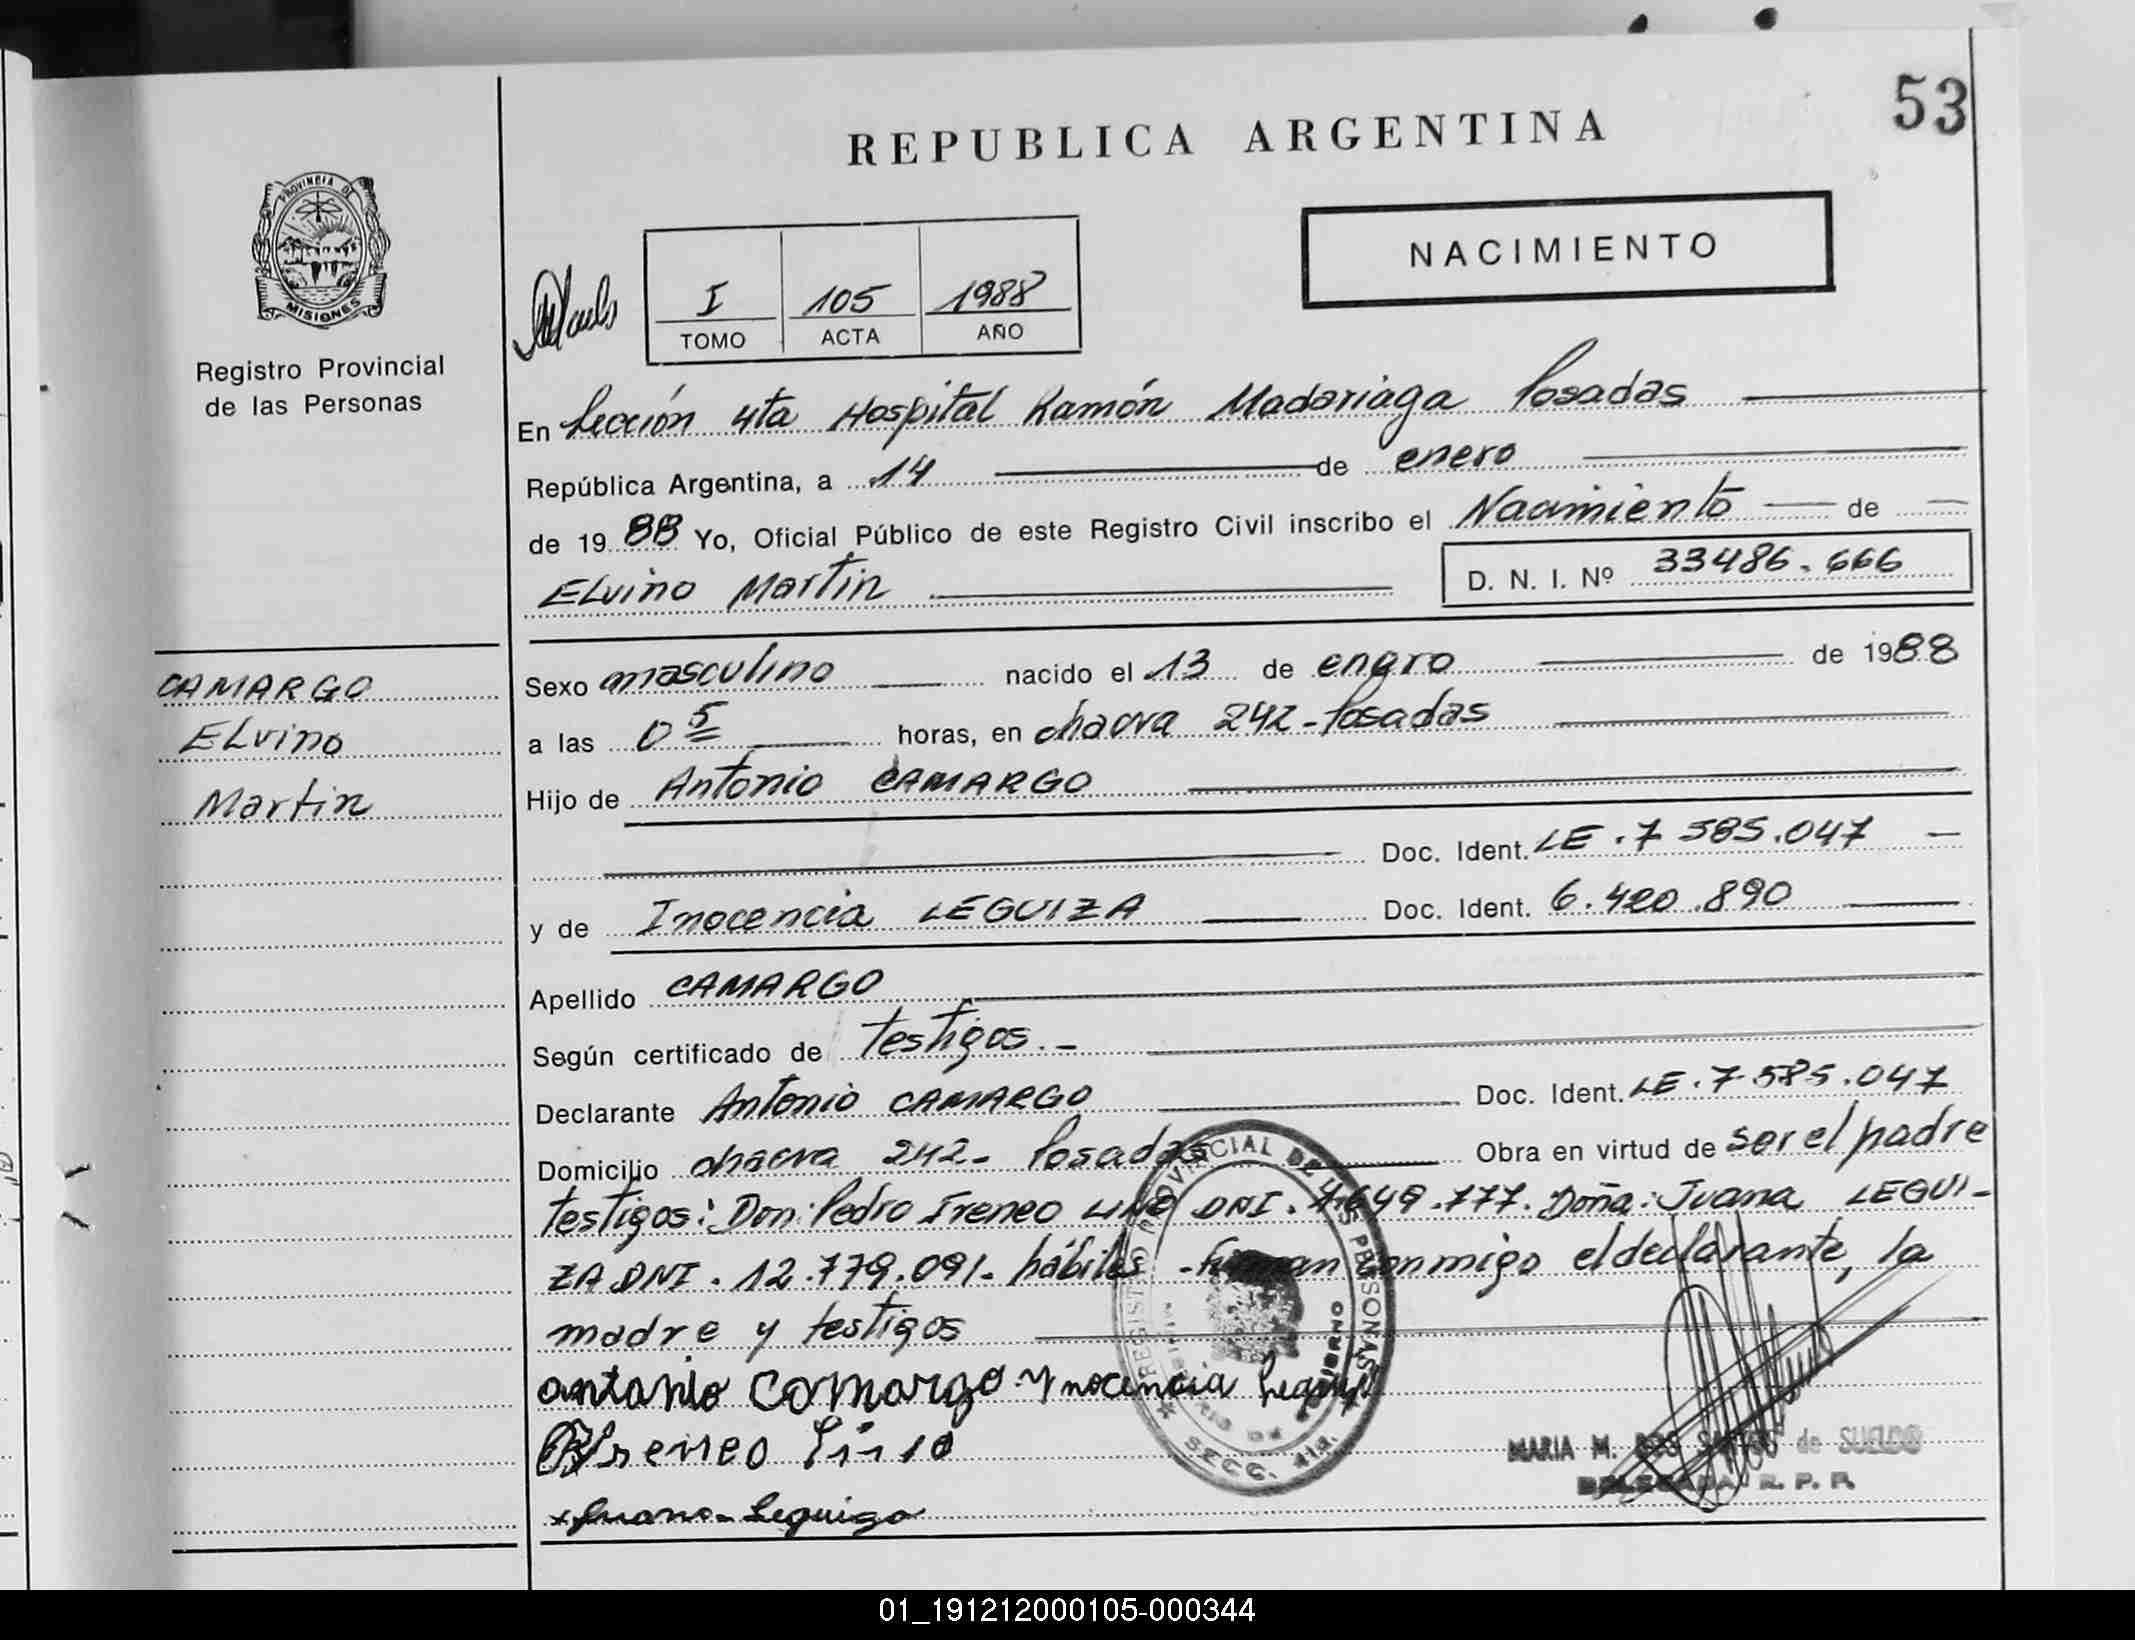 53
REPUBLICA ARGENTINA
NACIMIENTO
PROVINCIA DE
MISIONES
Registro Provincial
de las Personas
I 105 1988
TOMO ACTA AÑO
En Sección 4ta Hospital Ramón Madariaga Posadas
República Argentina, a 14 de enero
de 1988 Yo, Oficial Público de este Registro Civil inscribo el Nacimiento de
Elvino Martin D. N. I. Nº 33486.666
CAMARGO
Elvino
Martin
Sexo masculino nacido el 13 de enero de 1988
a las 0 5 horas, en chacra 242 - Posadas
Hijo de Antonio CAMARGO
Doc. Ident. LE.7 585.047
y de Inocencia LEGUIZA Doc. Ident. 6.420.890
Apellido CAMARGO
Según certificado de testigos.-
Declarante Antonio CAMARGO Doc. Ident. LE.7.585.047
Domicilio chacra 242- Posadas Obra en virtud de ser el padre
testigos: Don: Pedro Ireneo LINO DNI. 7.649.777. Doña: Juana LEGUI-
ZA DNI. 12.779.091- hábiles - firman conmigo el declarante, la
madre y testigos
antonio Camargo Ynocencia
Ireneo Lino
x Juana - Leguiza
REGISTRO PROVINCIAL DE LAS PERSONAS
SECC. 4ta.
MARIA M. DOS SANTOS de SUELDO
DELEGADA R. P. P.
01_191212000105-000344